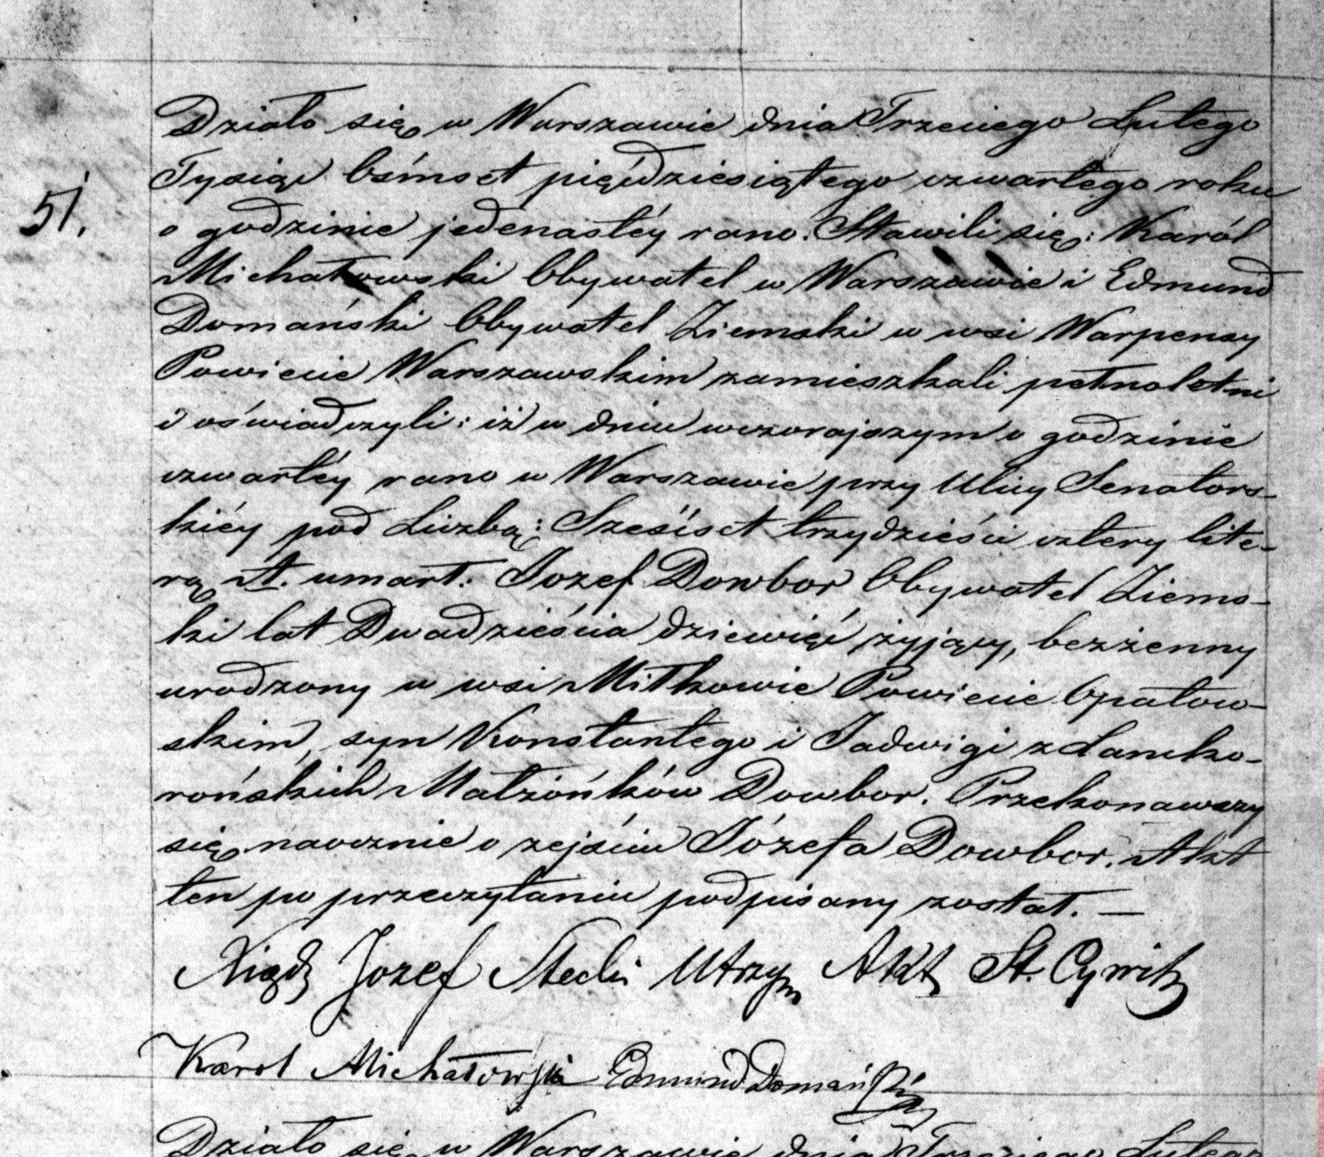 Działo się w Warszawie dnia Trzeciego Lutego
51. Tysiąc Ośmset pięćdziesiątego czwartego roku
o godzinie jedenastéy rano. Stawili się: Karól
Michałowski Obywatel w Warszawie i Edmund
Domański Obywatel Ziemski w wsi
Powiecie Warszawskim zamieszkali pełnoletni
i oświadczyli: iż w dniu wczorajszym o godzinie
czwartéy rano w Warszawie przy Ulicy Senators-
kiéy pod Liczbą: Sześćset trzydzieści cztery lite-
rą A. umarł: Jozef Dowbor Obywatel Ziems-
ki lat Dwadzieścia dziewięć żyjący, bezżenny
urodzony w wsi Mitkowie Powiecie Opatow-
skim, syn Konstantego i Jadwigi z Lancko-
rońskich Małżónków Dowbor. Przekonawszy
się naocznie o zejściu Józefa Dowbor. Akt
ten po przeczytaniu podpisany został. —
Xiądz Jozef Stecki Utrzym Akt St. Cywil
Karol Michałowski Edmund Domański
Działo się w Warszawie dnia Trzeciego Lutego